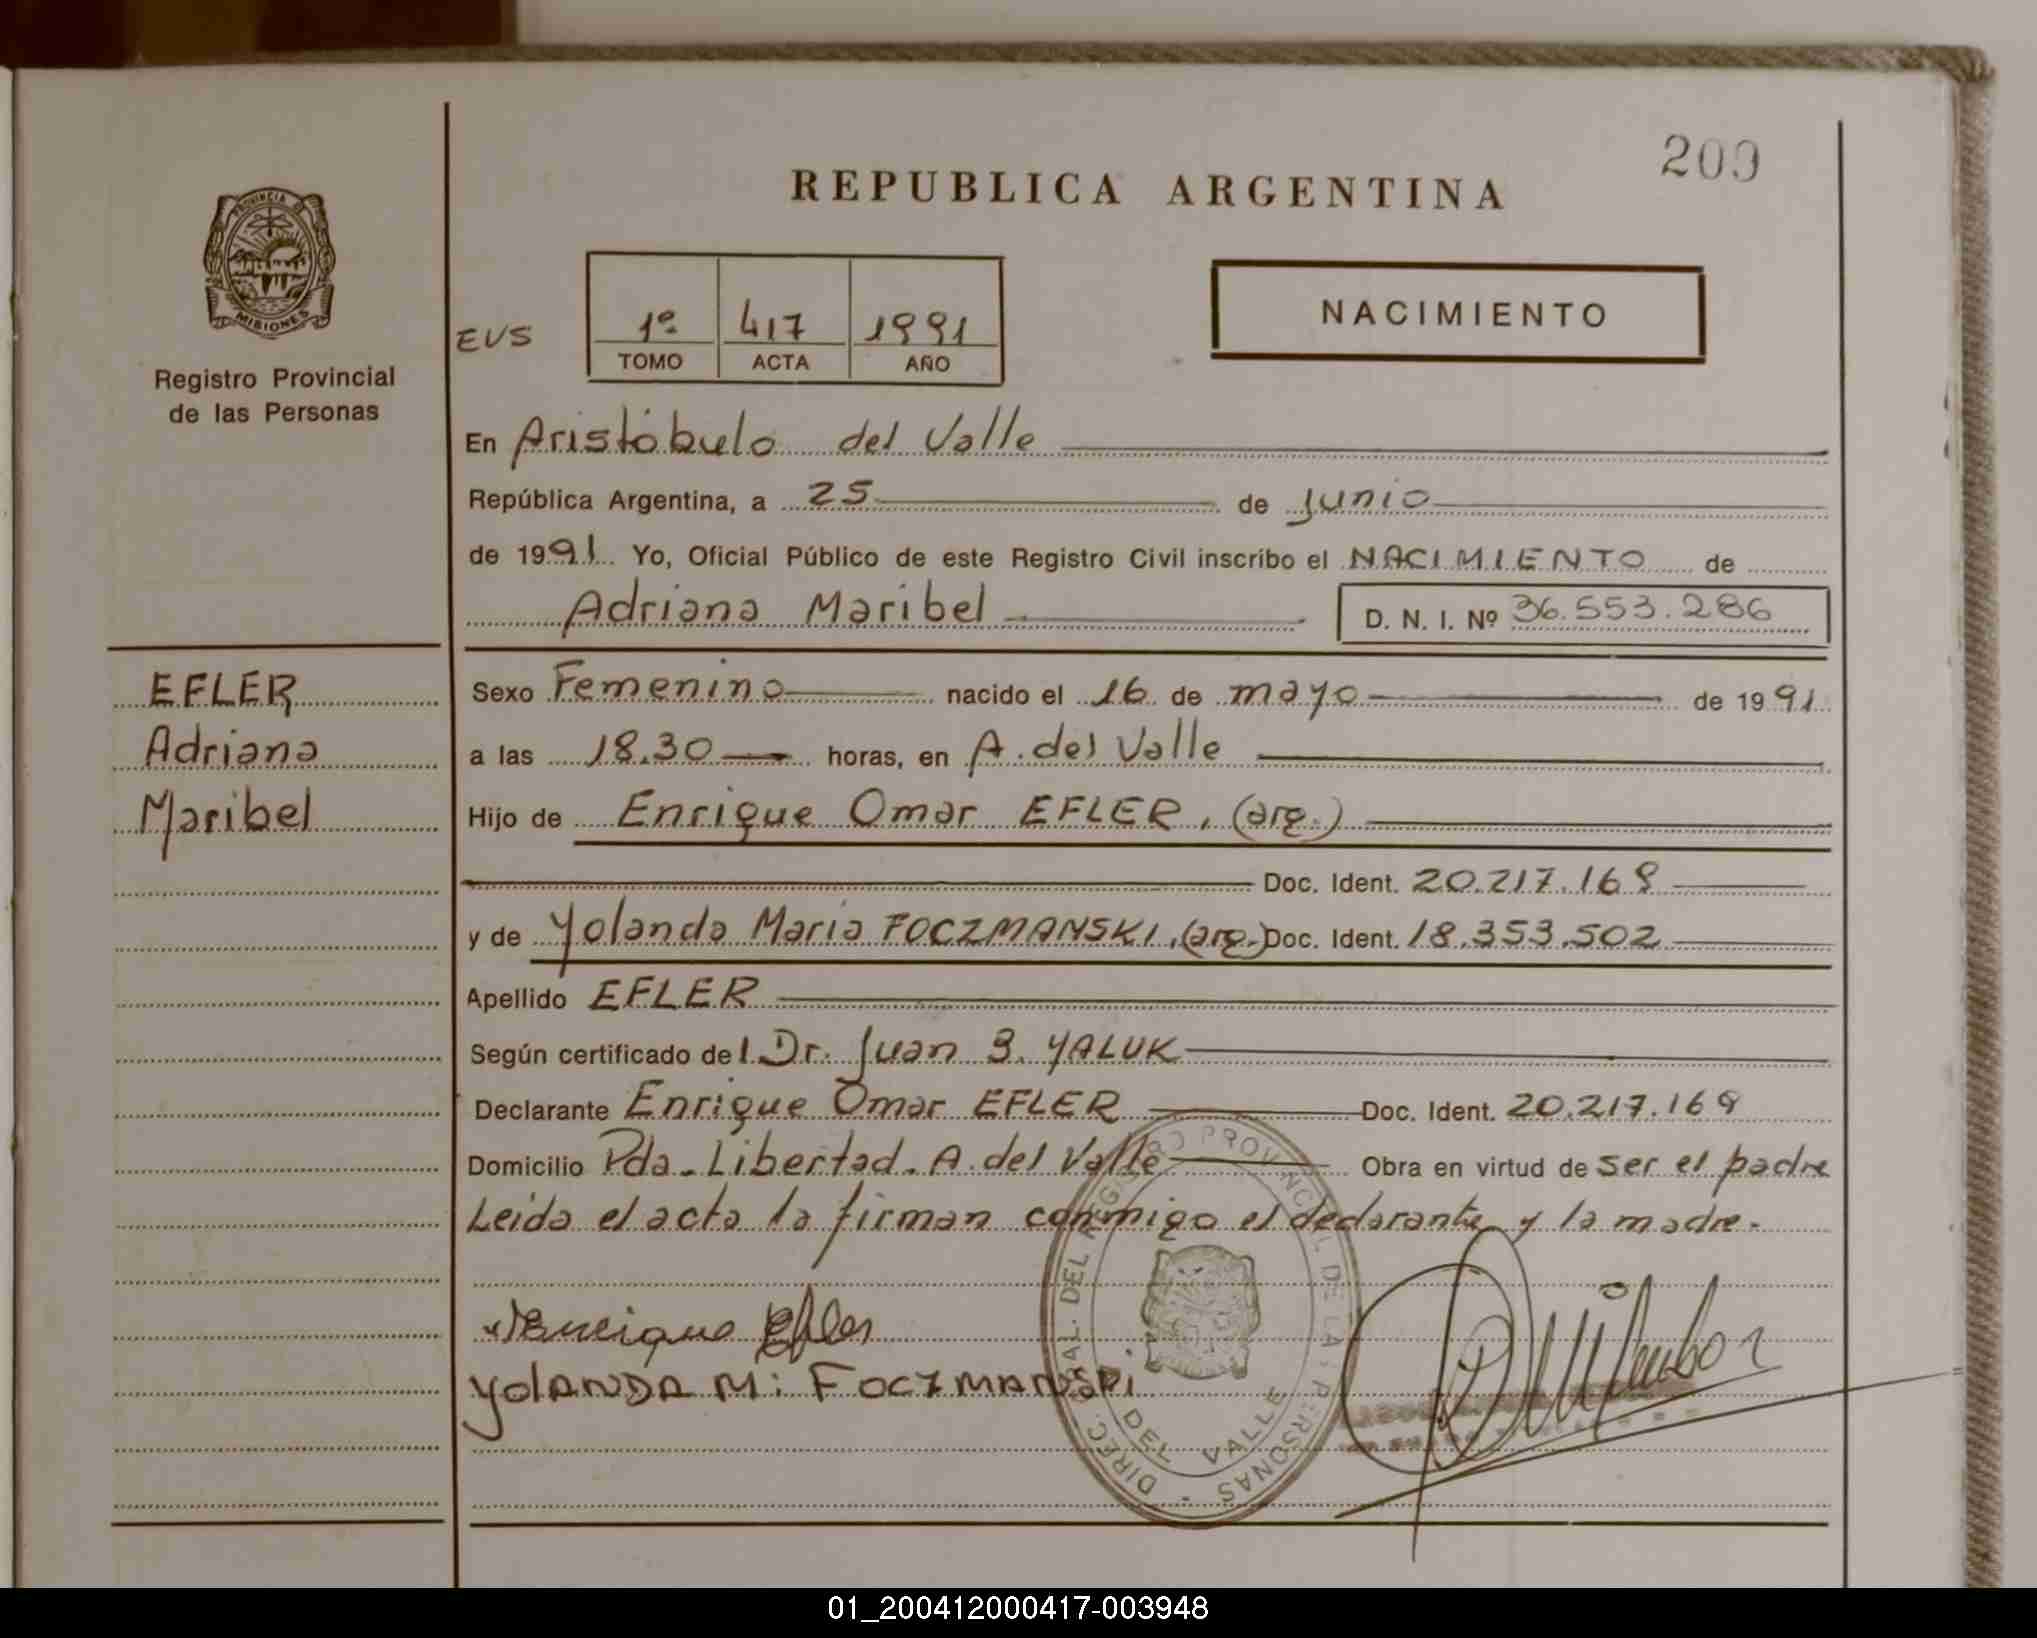 209
REPUBLICA ARGENTINA
PROVINCIA DE
MISIONES
Registro Provincial
de las Personas
EVS
1º 417 1991
TOMO ACTA AÑO
NACIMIENTO
En Aristóbulo del Valle
República Argentina, a 25 de Junio
de 1991. Yo, Oficial Público de este Registro Civil inscribo el NACIMIENTO de
Adriana Maribel D. N. I. Nº 36.553.286
EFLER
Adriana
Maribel
Sexo Femenino nacido el 16 de mayo de 1991
a las 18.30 horas, en A. del Valle
Hijo de Enrique Omar EFLER, (arg.)
Doc. Ident. 20.217.169
y de Yolanda Maria FOCZMANSKI, (arg.) Doc. Ident. 18.353.502
Apellido EFLER
Según certificado del Dr. Juan B. YALUK
Declarante Enrique Omar EFLER Doc. Ident. 20.217.169
Domicilio Pda. Libertad. A. del Valle Obra en virtud de ser el padre
Leida el acta la firman conmigo el declarante y la madre.
Enrique Efler
YOLANDA M: FOCZMANSKi
DIREC. GRAL. DEL REGISTRO PROVINCIAL DE LAS PERSONAS -
DEL VALLE
01_200412000417-003948